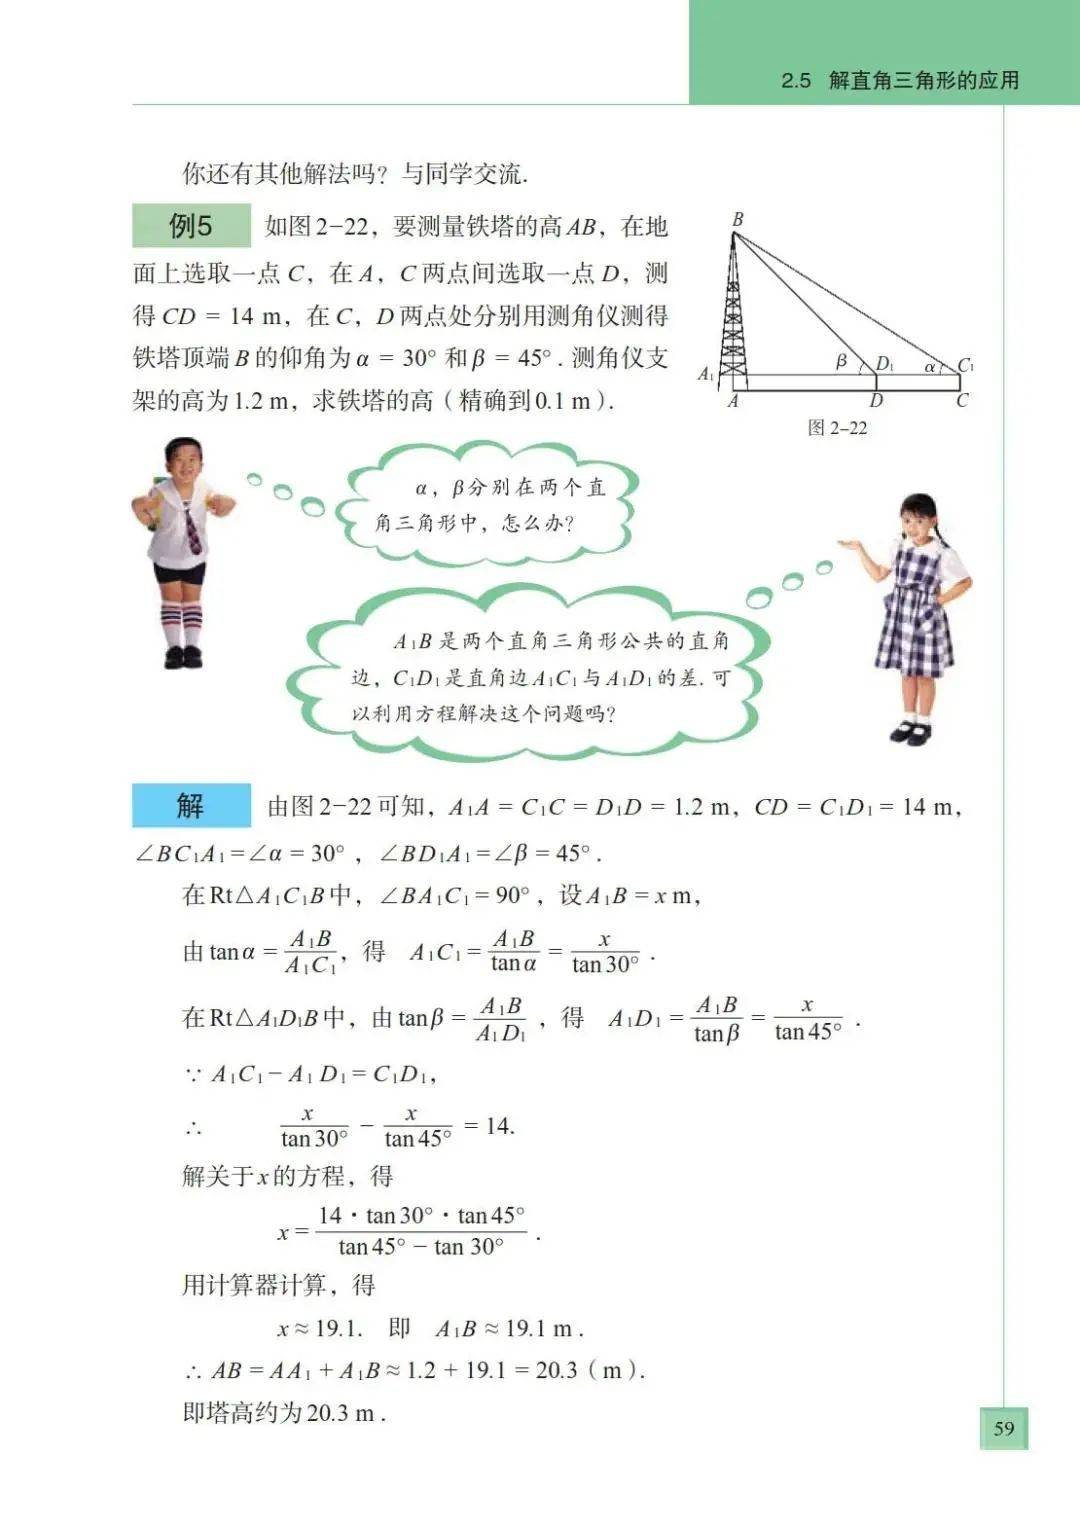 2.5 解直角三角形的应用
你还有其他解法吗？与同学交流.
例5 如图2-22，要测量铁塔的高AB，在地
面上选取一点C，在A，C两点间选取一点D，测
得CD = 14 m，在C，D两点处分别用测角仪测得
铁塔顶端B的仰角为α = 30° 和β = 45°. 测角仪支
架的高为1.2 m，求铁塔的高（精确到0.1 m）.
B
A₁ β D₁ α C₁
A D C
图 2-22
α，β分别在两个直
角三角形中，怎么办？
A₁B是两个直角三角形公共的直角
边，C₁D₁是直角边A₁C₁与A₁D₁的差. 可
以利用方程解决这个问题吗？
解 由图2-22可知，A₁A = C₁C = D₁D = 1.2 m，CD = C₁D₁ = 14 m，
∠BC₁A₁=∠α = 30°，∠BD₁A₁=∠β = 45°.
在Rt△A₁C₁B中，∠BA₁C₁ = 90°，设A₁B = x m，
由 tan α = A₁B/A₁C₁，得 A₁C₁ = A₁B/tan α = x/tan 30°.
在Rt△A₁D₁B中，由 tan β = A₁B/A₁D₁，得 A₁D₁ = A₁B/tan β = x/tan 45°.
∵ A₁C₁ − A₁D₁ = C₁D₁，
∴ x/tan 30° − x/tan 45° = 14.
解关于x的方程，得
x = 14·tan 30°·tan 45°/tan 45° − tan 30°.
用计算器计算，得
x ≈ 19.1. 即 A₁B ≈ 19.1 m.
∴ AB = AA₁ + A₁B ≈ 1.2 + 19.1 = 20.3（m）.
即塔高约为20.3 m.
59